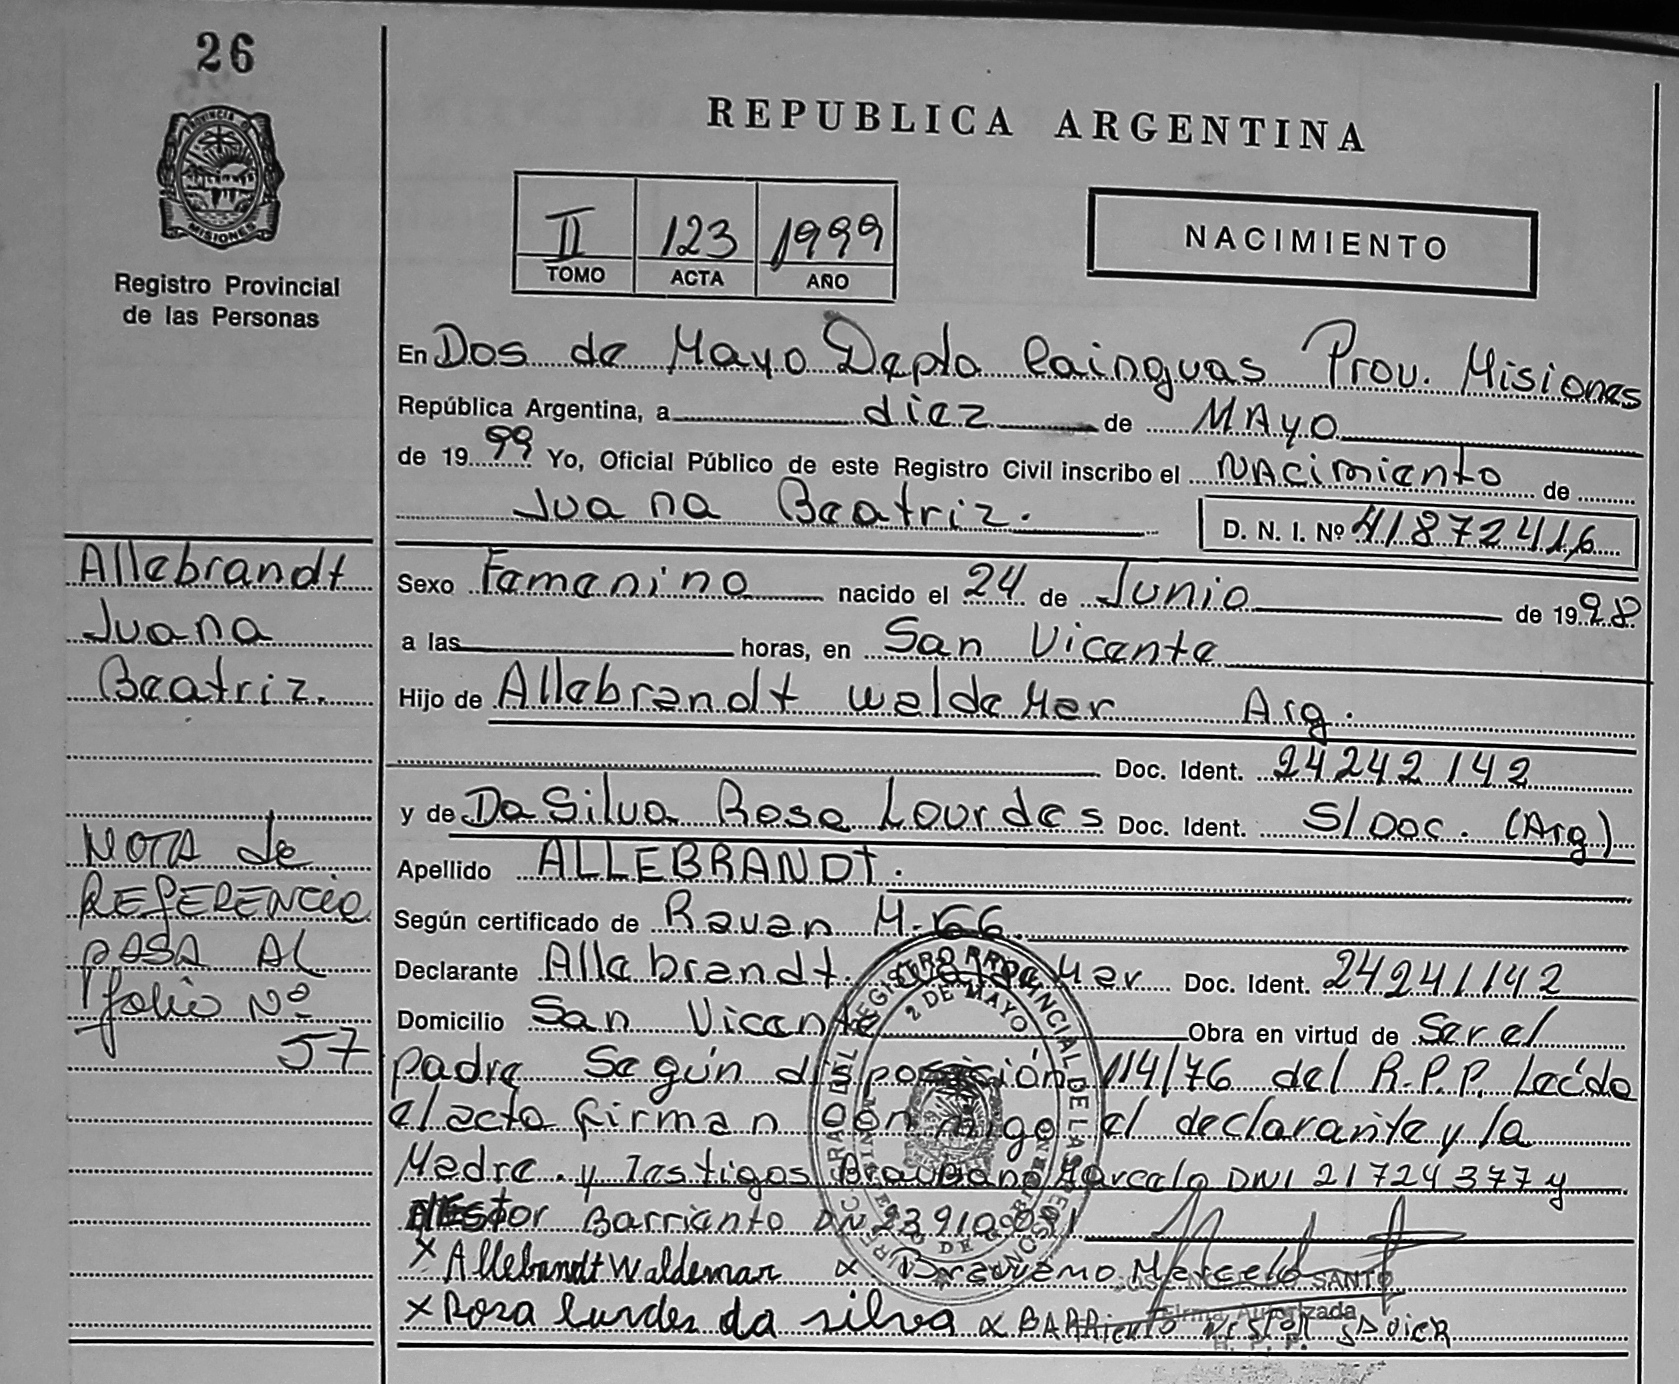 26
PROVINCIA D
MISIONES
Registro Provincial
de las Personas
REPUBLICA ARGENTINA
II 123 1999
TOMO ACTA AÑO
NACIMIENTO
En Dos de Mayo Depto Cainguas Prov. Misiones
República Argentina, a diez de MAyo
de 1999 Yo, Oficial Público de este Registro Civil inscribo el NAcimiento de
Juana Beatriz.
D. N. I. Nº 41872416
Allebrandt
Juana
Beatriz.
Sexo Femenino nacido el 24 de Junio de 1998
a las horas, en San Vicente
Hijo de Allebrandt Waldemar Arg.
Doc. Ident. 24242142
y de Da Silva Rosa Lourdes Doc. Ident. S/Doc. (Arg)
Apellido ALLEBRANDt.
Según certificado de M.
Declarante Allebrandt Doc. Ident. 24241142
Domicilio San Vicente Obra en virtud de Ser el
padre Según disposición 114/76 del R.P.P. Leído
el acta firman conmigo el declarante y la
Madre y Testigos Marcelo DNI 21724377 y
Nestor Barriento
X Allebrandt Waldemar
X Rosa lurdes da silva BARRiento NESTOR
NOTA de
REFERENCIA
PASA AL
folio Nº
57
REGISTRO PROVINCIAL DE LAS PERSONAS
2 DE MAYO
SANTO
Firma Autorizada